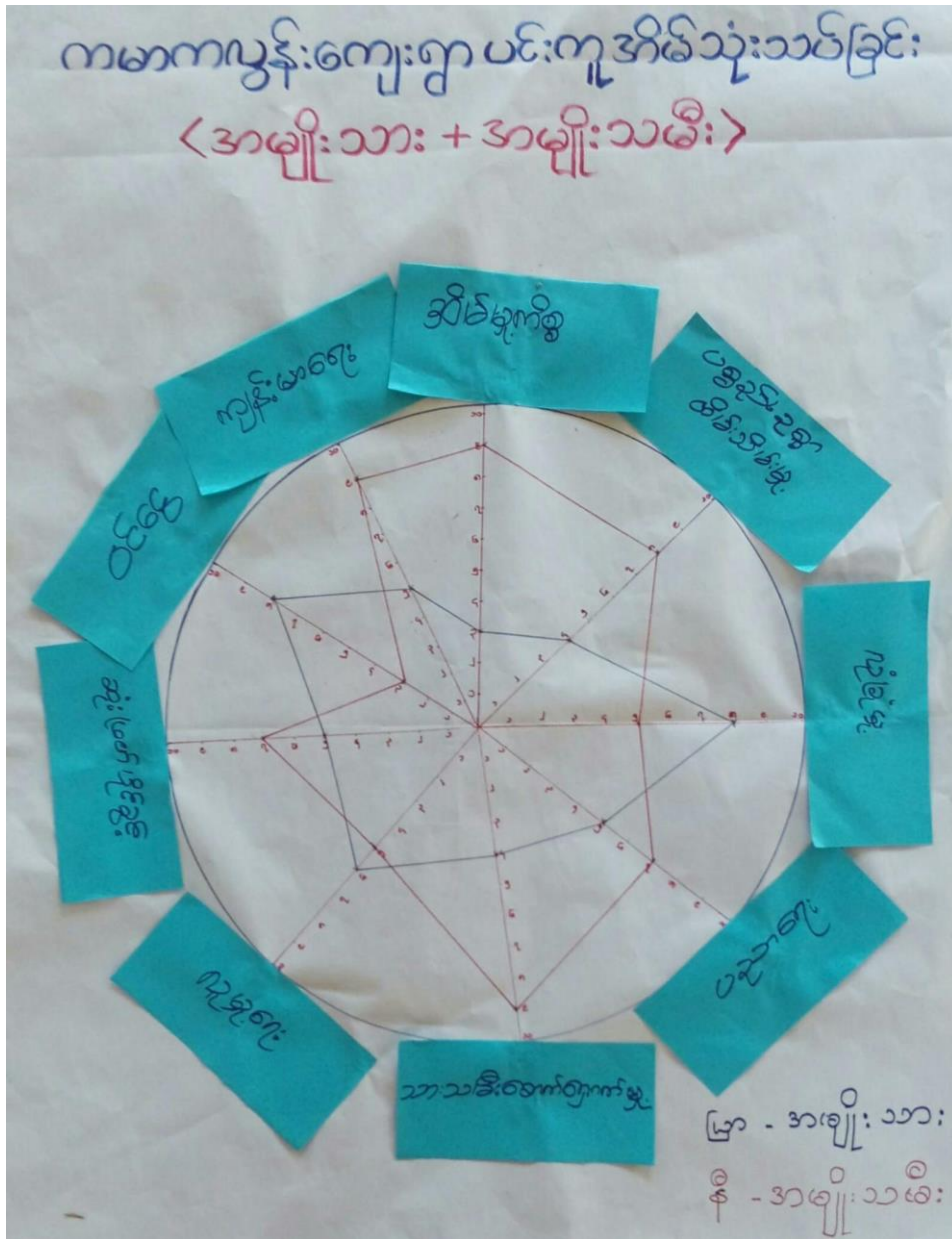 ကမာကလွန်းကျေးရွာ ပင်းကူအိမ်သုံးသပ်ခြင်း
<အမျိုးသား + အမျိုးသမီး>
အိမ်မှုကိစ္စ
ပစ္စည်းဥစ္စာ
ထိမ်းသိမ်းမှု
လုံခြုံမှု
ပညာရေး
သားသမီးစောက်ရှောက်မှု
လူမှုရေး
ဆုံးဖြတ်ပိုင်ခွင့်
ဝင်ငွေ
ကျန်းမာရေး
ပြာ - အမျိုးသား
နီ - အမျိုးသမီး